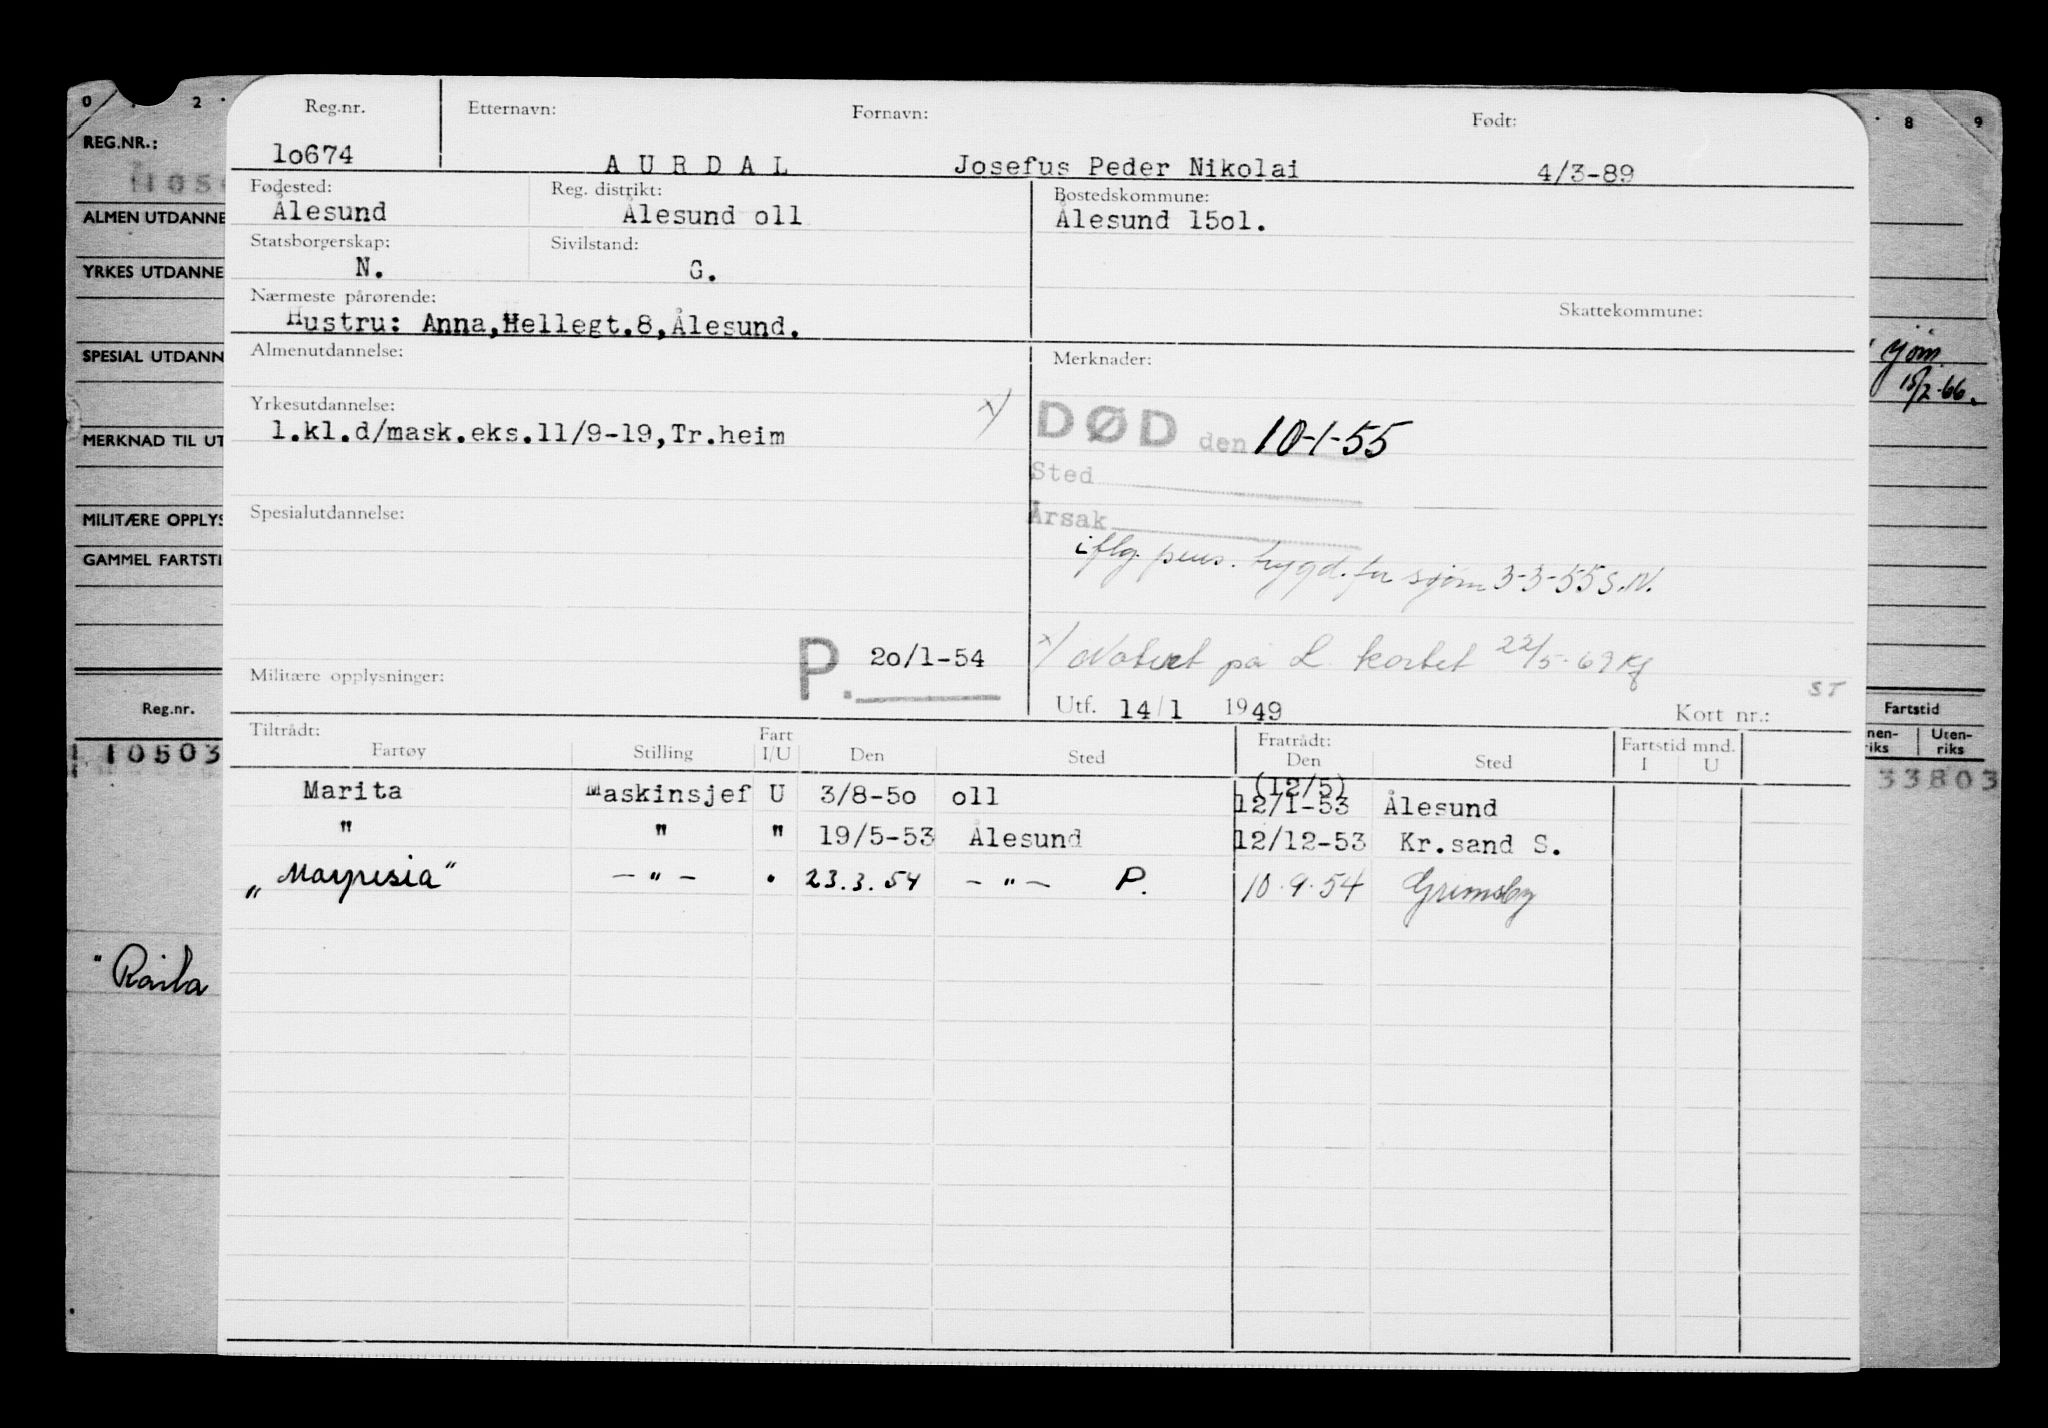 0 2 8 9
REG.NR.:
ALMEN UTDANNE
YRKES UTDANNE
SPESIAL UTDANN
MERKNAD TIL UT
MILITÆRE OPPLYS
GAMMEL FARTSTI
Reg.nr.
10503
"Raila
15/2-66.
Fartstid
nen- Uten-
riks riks
33803
Reg.nr. Etternavn: Fornavn: Født:
lo674 A U R D A L Josefus Peder Nikolai 4/3-89
Fødested: Reg. distrikt: Bostedskommune:
Ålesund Ålesund oll Ålesund 15ol.
Statsborgerskap: Sivilstand:
N. G.
Nærmeste pårørende: Skattekommune:
Hustru: Anna,Hellegt.8,Ålesund.
Almenutdannelse: Merknader:
Yrkesutdannelse: x/
1.kl.d/mask.eks.11/9-19,Tr.heim
DØD den 10-1-55
Sted
Årsak
Spesialutdannelse:
iflg. pens. trygd. for sjøm 3-3-55 S.N.
P. 2o/1-54
x/ Notert på L kortet 22/5-69 Kf
Militære opplysninger: ST
Utf. 14/1 1949 Kort nr.:
Tiltrådt: Fratrådt: Fartstid mnd.
Fartøy Stilling Fart I/U Den Sted Den Sted I U
Marita Maskinsjef U 3/8-5o oll (12/5) 12/1-53 Ålesund
" " " 19/5-53 Ålesund 12/12-53 Kr.sand S.
"Marpesia" — " — " 23.3.54 — " — P. 10.9.54 Grimsby